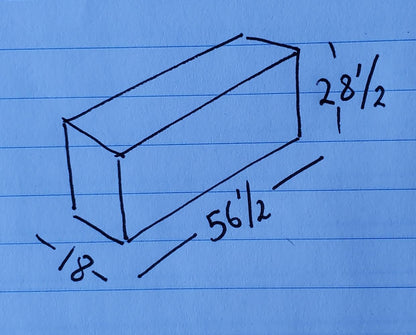 28 1/2
56 1/2
18